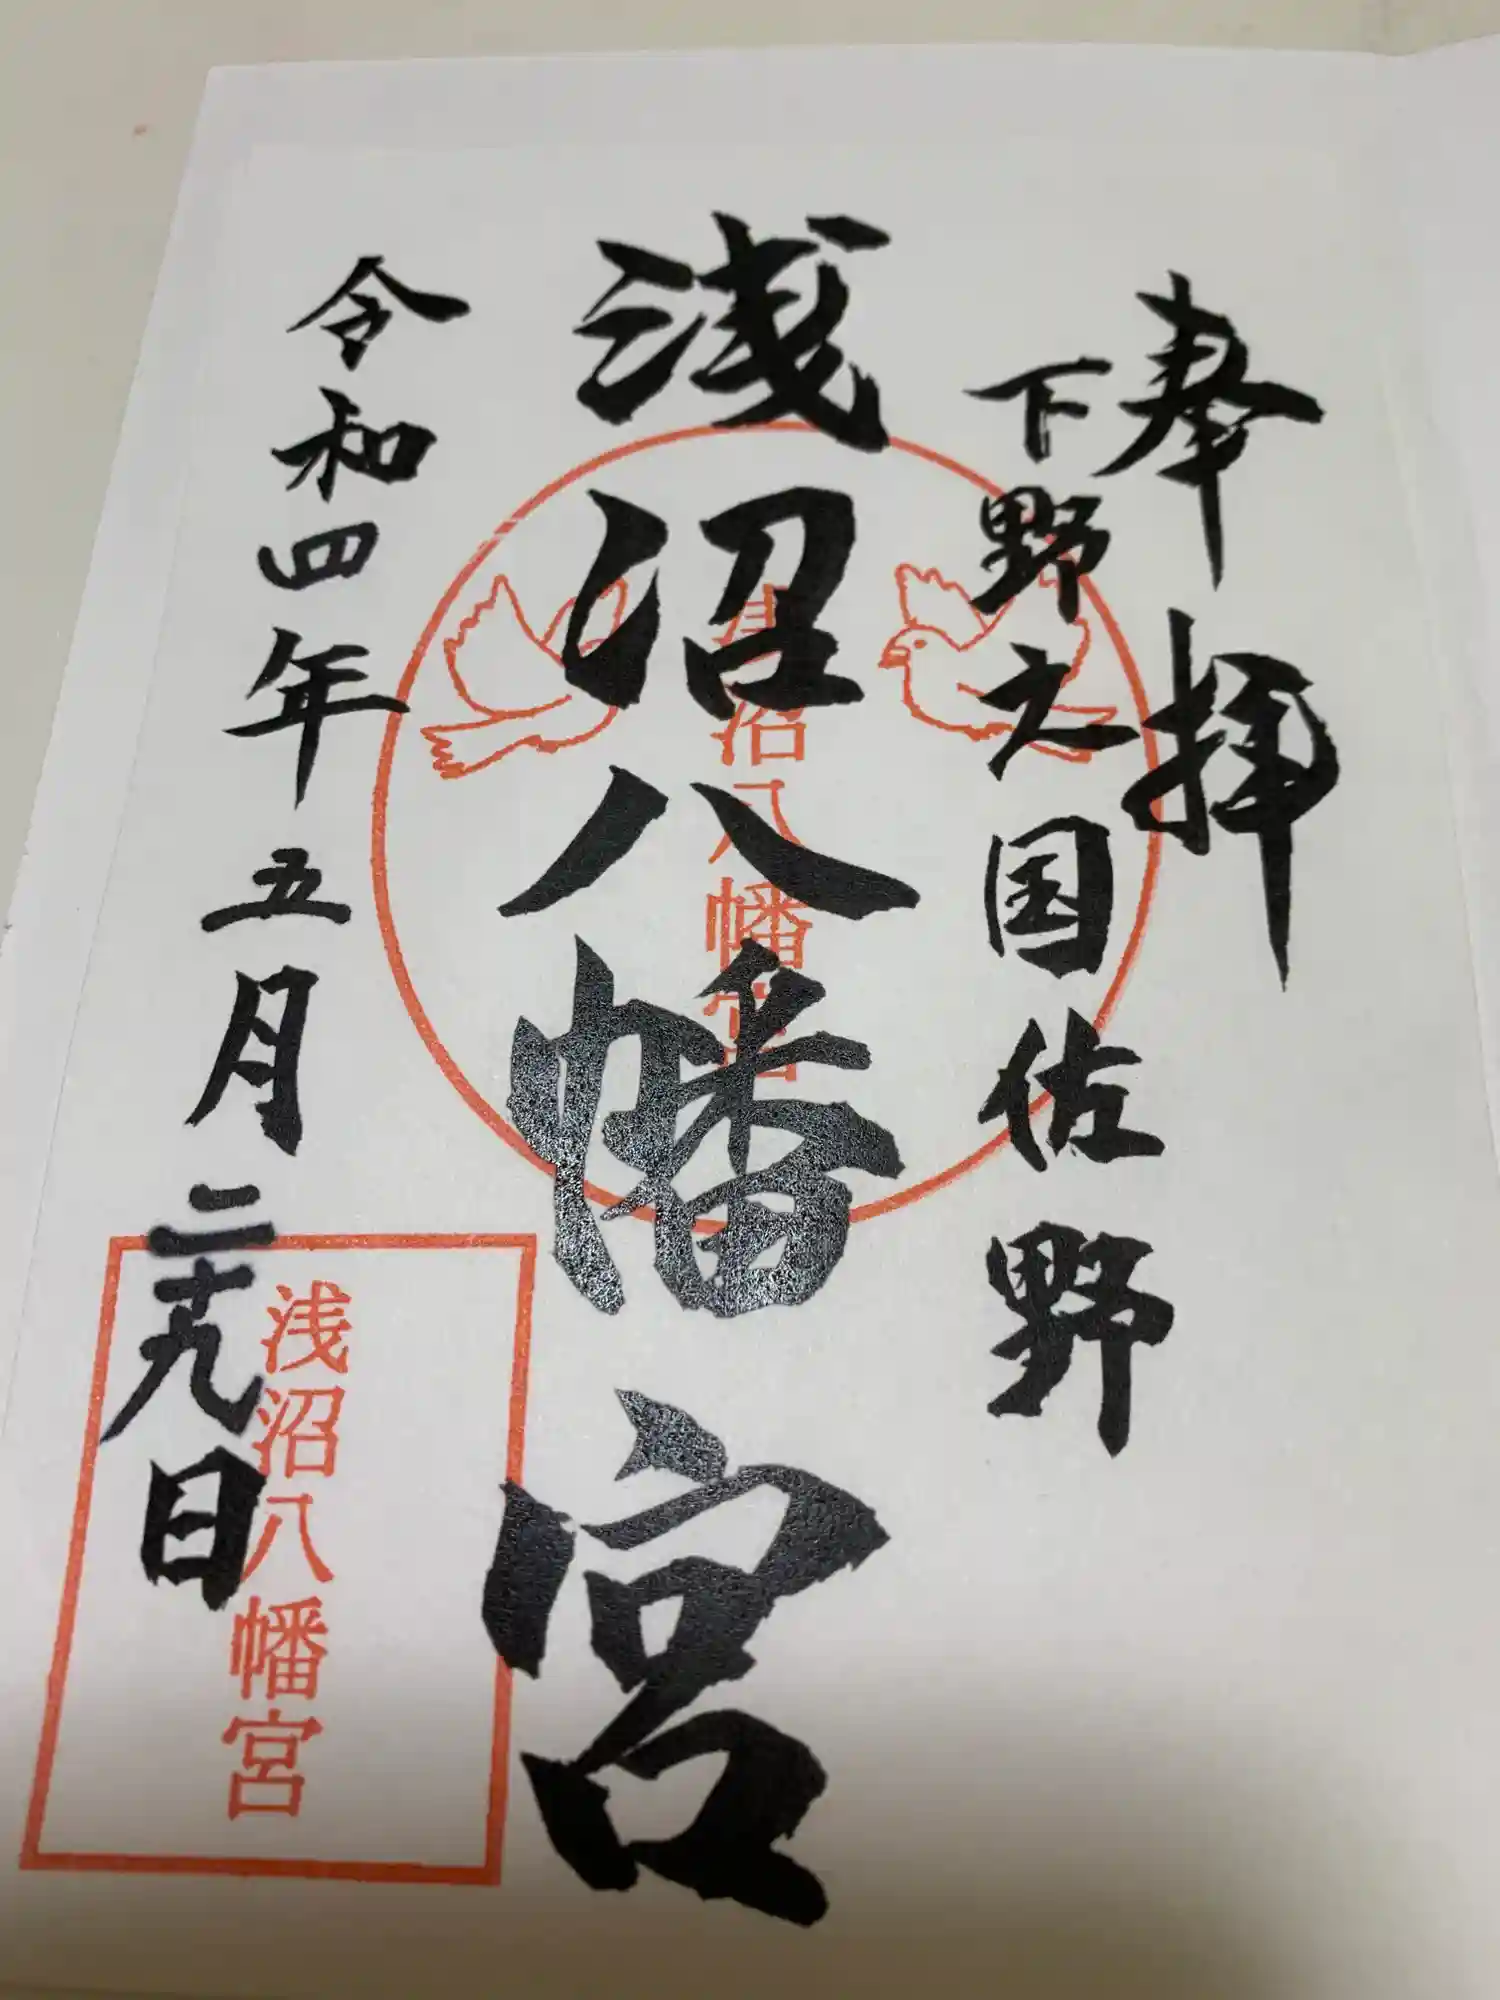 奉拝
下野之国佐野
浅沼八幡宮
浅沼八幡宮
令和四年五月二十九日
浅沼八幡宮